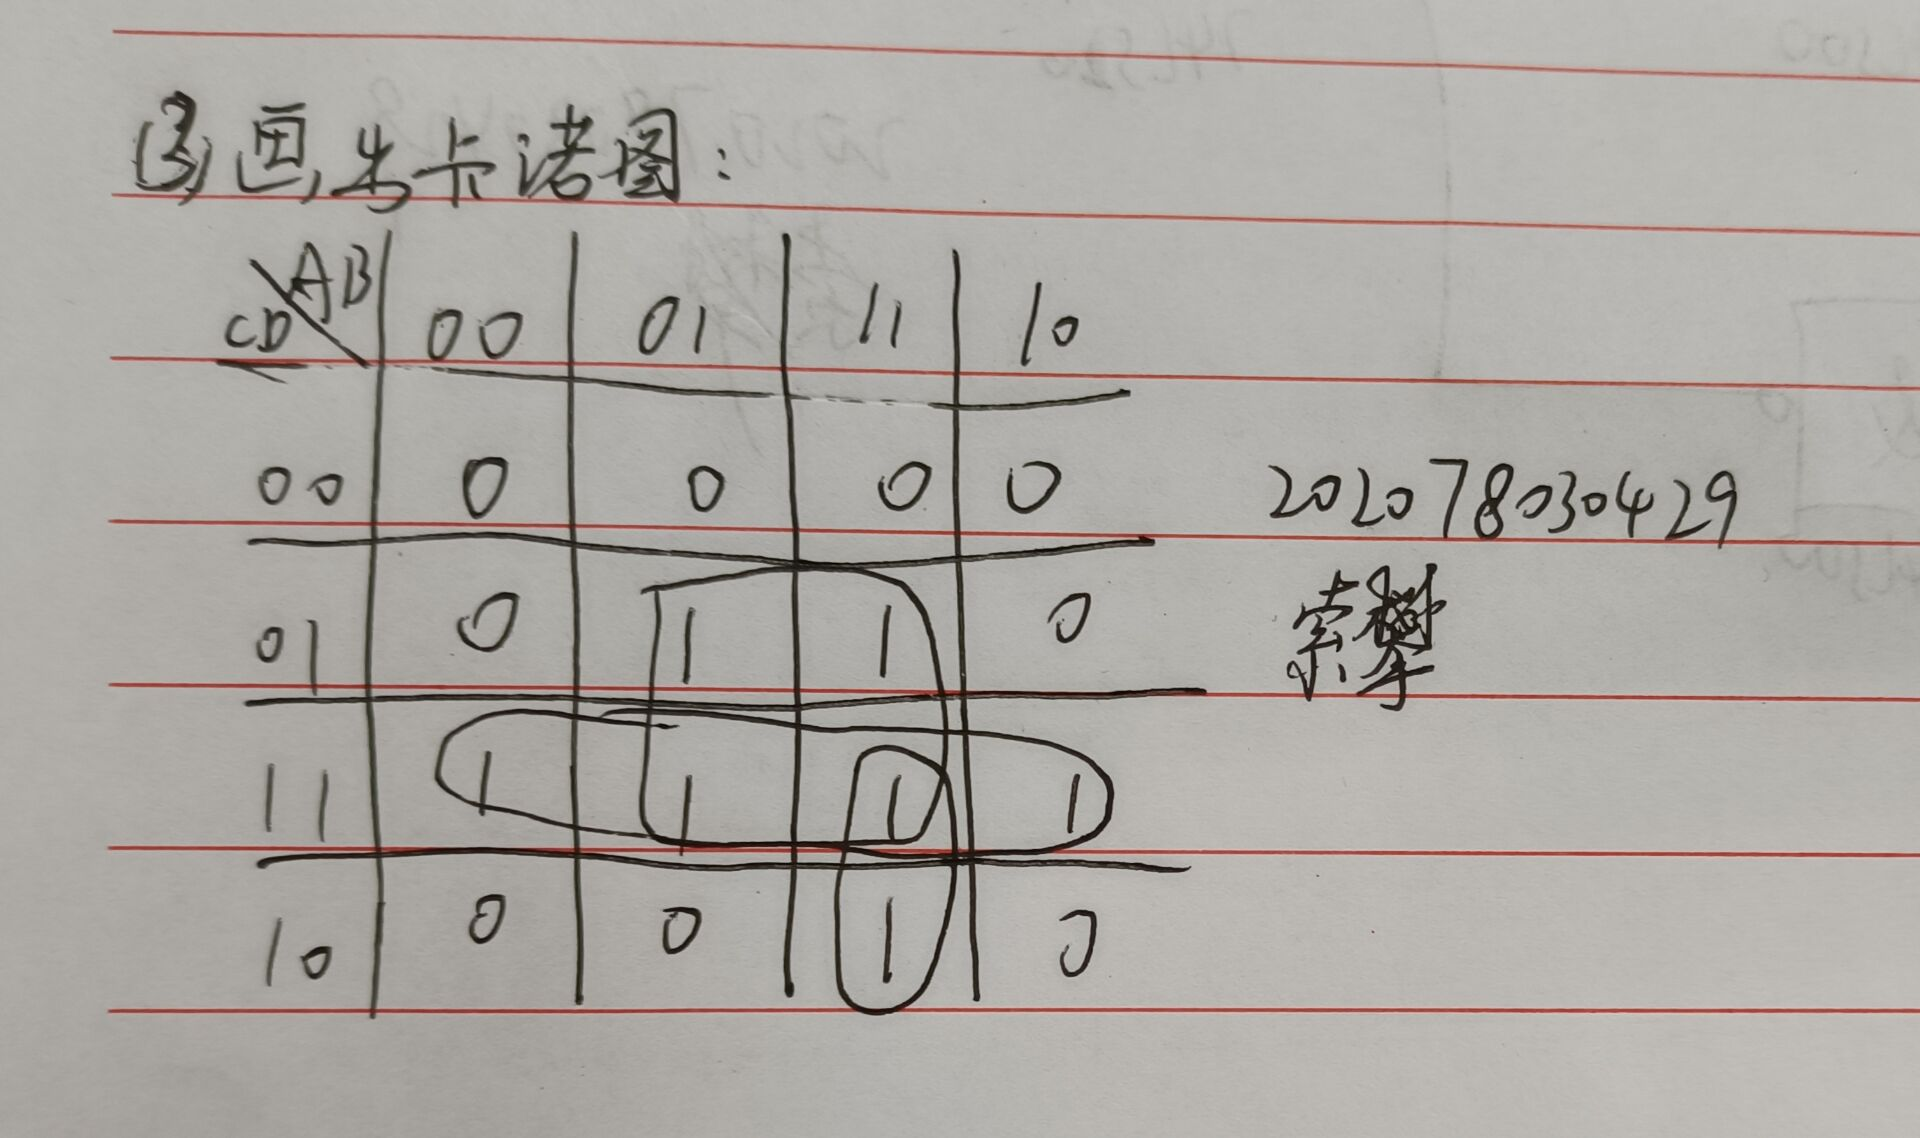 (3)画出卡诺图:
AB
CD 00 01 11 10
00 0 0 0 0
01 0 1 1 0
11 1 1 1 1
10 0 0 1 0
2020780030429
索